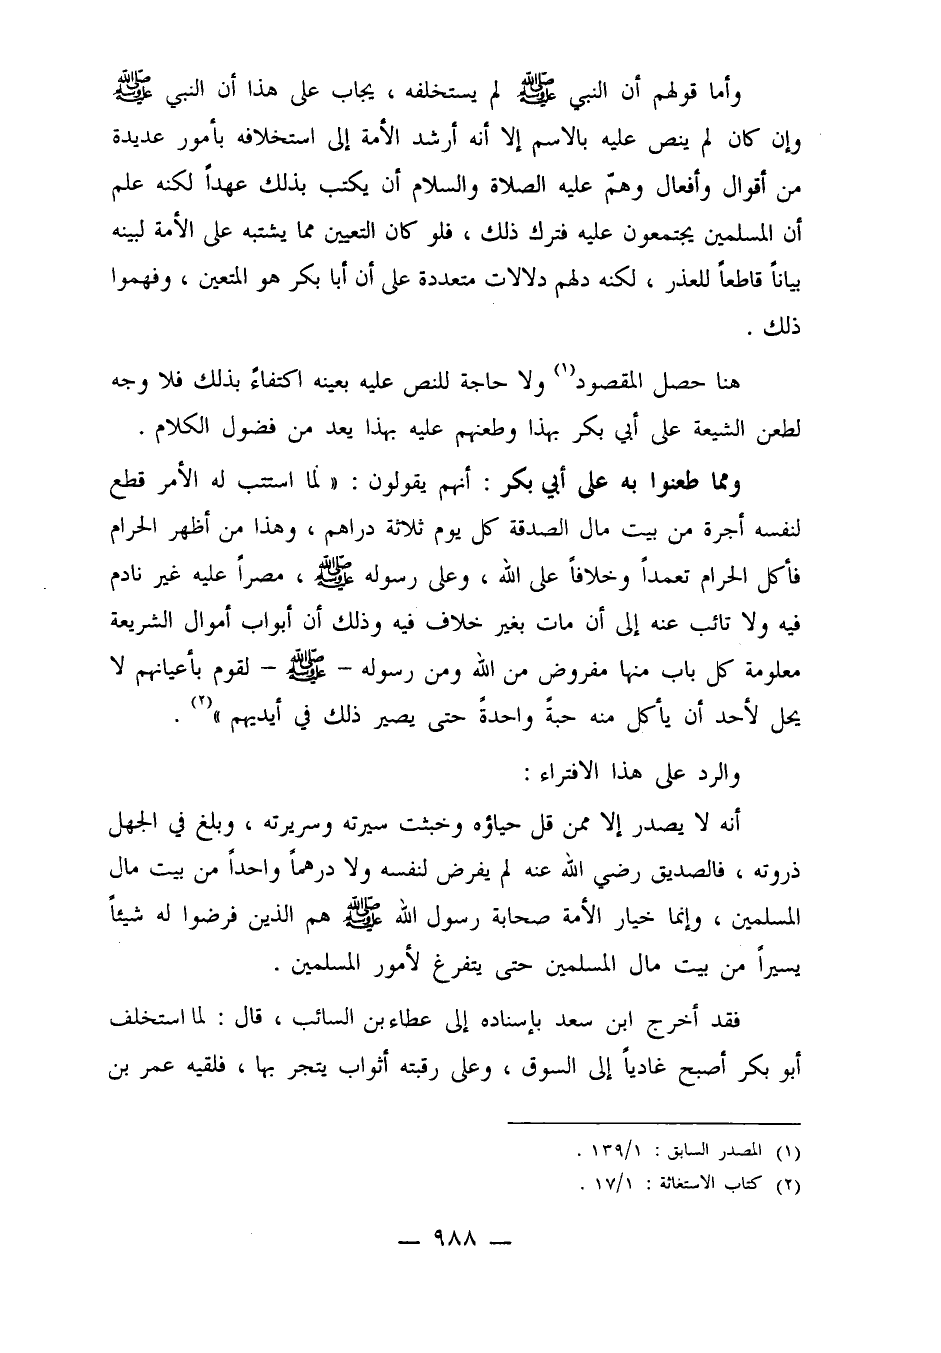 وأما قولهم أن النبي ﷺ لم يستخلفه ، يجاب على هذا أن النبي ﷺ
وإن كان لم ينص عليه بالاسم إلا أنه أرشد الأمة إلى استخلافه بأمور عديدة
من أقوال وأفعال وهمّ عليه الصلاة والسلام أن يكتب بذلك عهداً لكنه علم
أن المسلمين يجتمعون عليه فترك ذلك ، فلو كان التعيين مما يشتبه على الأمة لبينه
بياناً قاطعاً للعذر ، لكنه دلهم دلالات متعددة على أن أبا بكر هو المتعين ، وفهموا
ذلك .
هنا حصل المقصود(١) ولا حاجة للنص عليه بعينه اكتفاءً بذلك فلا وجه
لطعن الشيعة على أبي بكر بهذا وطعنهم عليه بهذا يعد من فضول الكلام .
ومما طعنوا به على أبي بكر : أنهم يقولون : « لما استتب له الأمر قطع
لنفسه أجرة من بيت مال الصدقة كل يوم ثلاثة دراهم ، وهذا من أظهر الحرام
فأكل الحرام تعمداً وخلافاً على الله ، وعلى رسوله ﷺ ، مصراً عليه غير نادم
فيه ولا تائب عنه إلى أن مات بغير خلاف فيه وذلك أن أبواب أموال الشريعة
معلومة كل باب منها مفروض من الله ومن رسوله – ﷺ – لقوم بأعيانهم لا
يحل لأحد أن يأكل منه حبةً واحدةً حتى يصير ذلك في أيديهم »(٢) .
والرد على هذا الافتراء :
أنه لا يصدر إلا ممن قل حياؤه وخبثت سيرته وسريرته ، وبلغ في الجهل
ذروته ، فالصديق رضي الله عنه لم يفرض لنفسه ولا درهماً واحداً من بيت مال
المسلمين ، وإنما خيار الأمة صحابة رسول الله ﷺ هم الذين فرضوا له شيئاً
يسيراً من بيت مال المسلمين حتى يتفرغ لأمور المسلمين .
فقد أخرج ابن سعد بإسناده إلى عطاء بن السائب ، قال : لما استخلف
أبو بكر أصبح غادياً إلى السوق ، وعلى رقبته أثواب يتجر بها ، فلقيه عمر بن
(١) المصدر السابق : ١٣٩/١ .
(٢) كتاب الاستغاثة : ١٧/١ .
— ٩٨٨ —